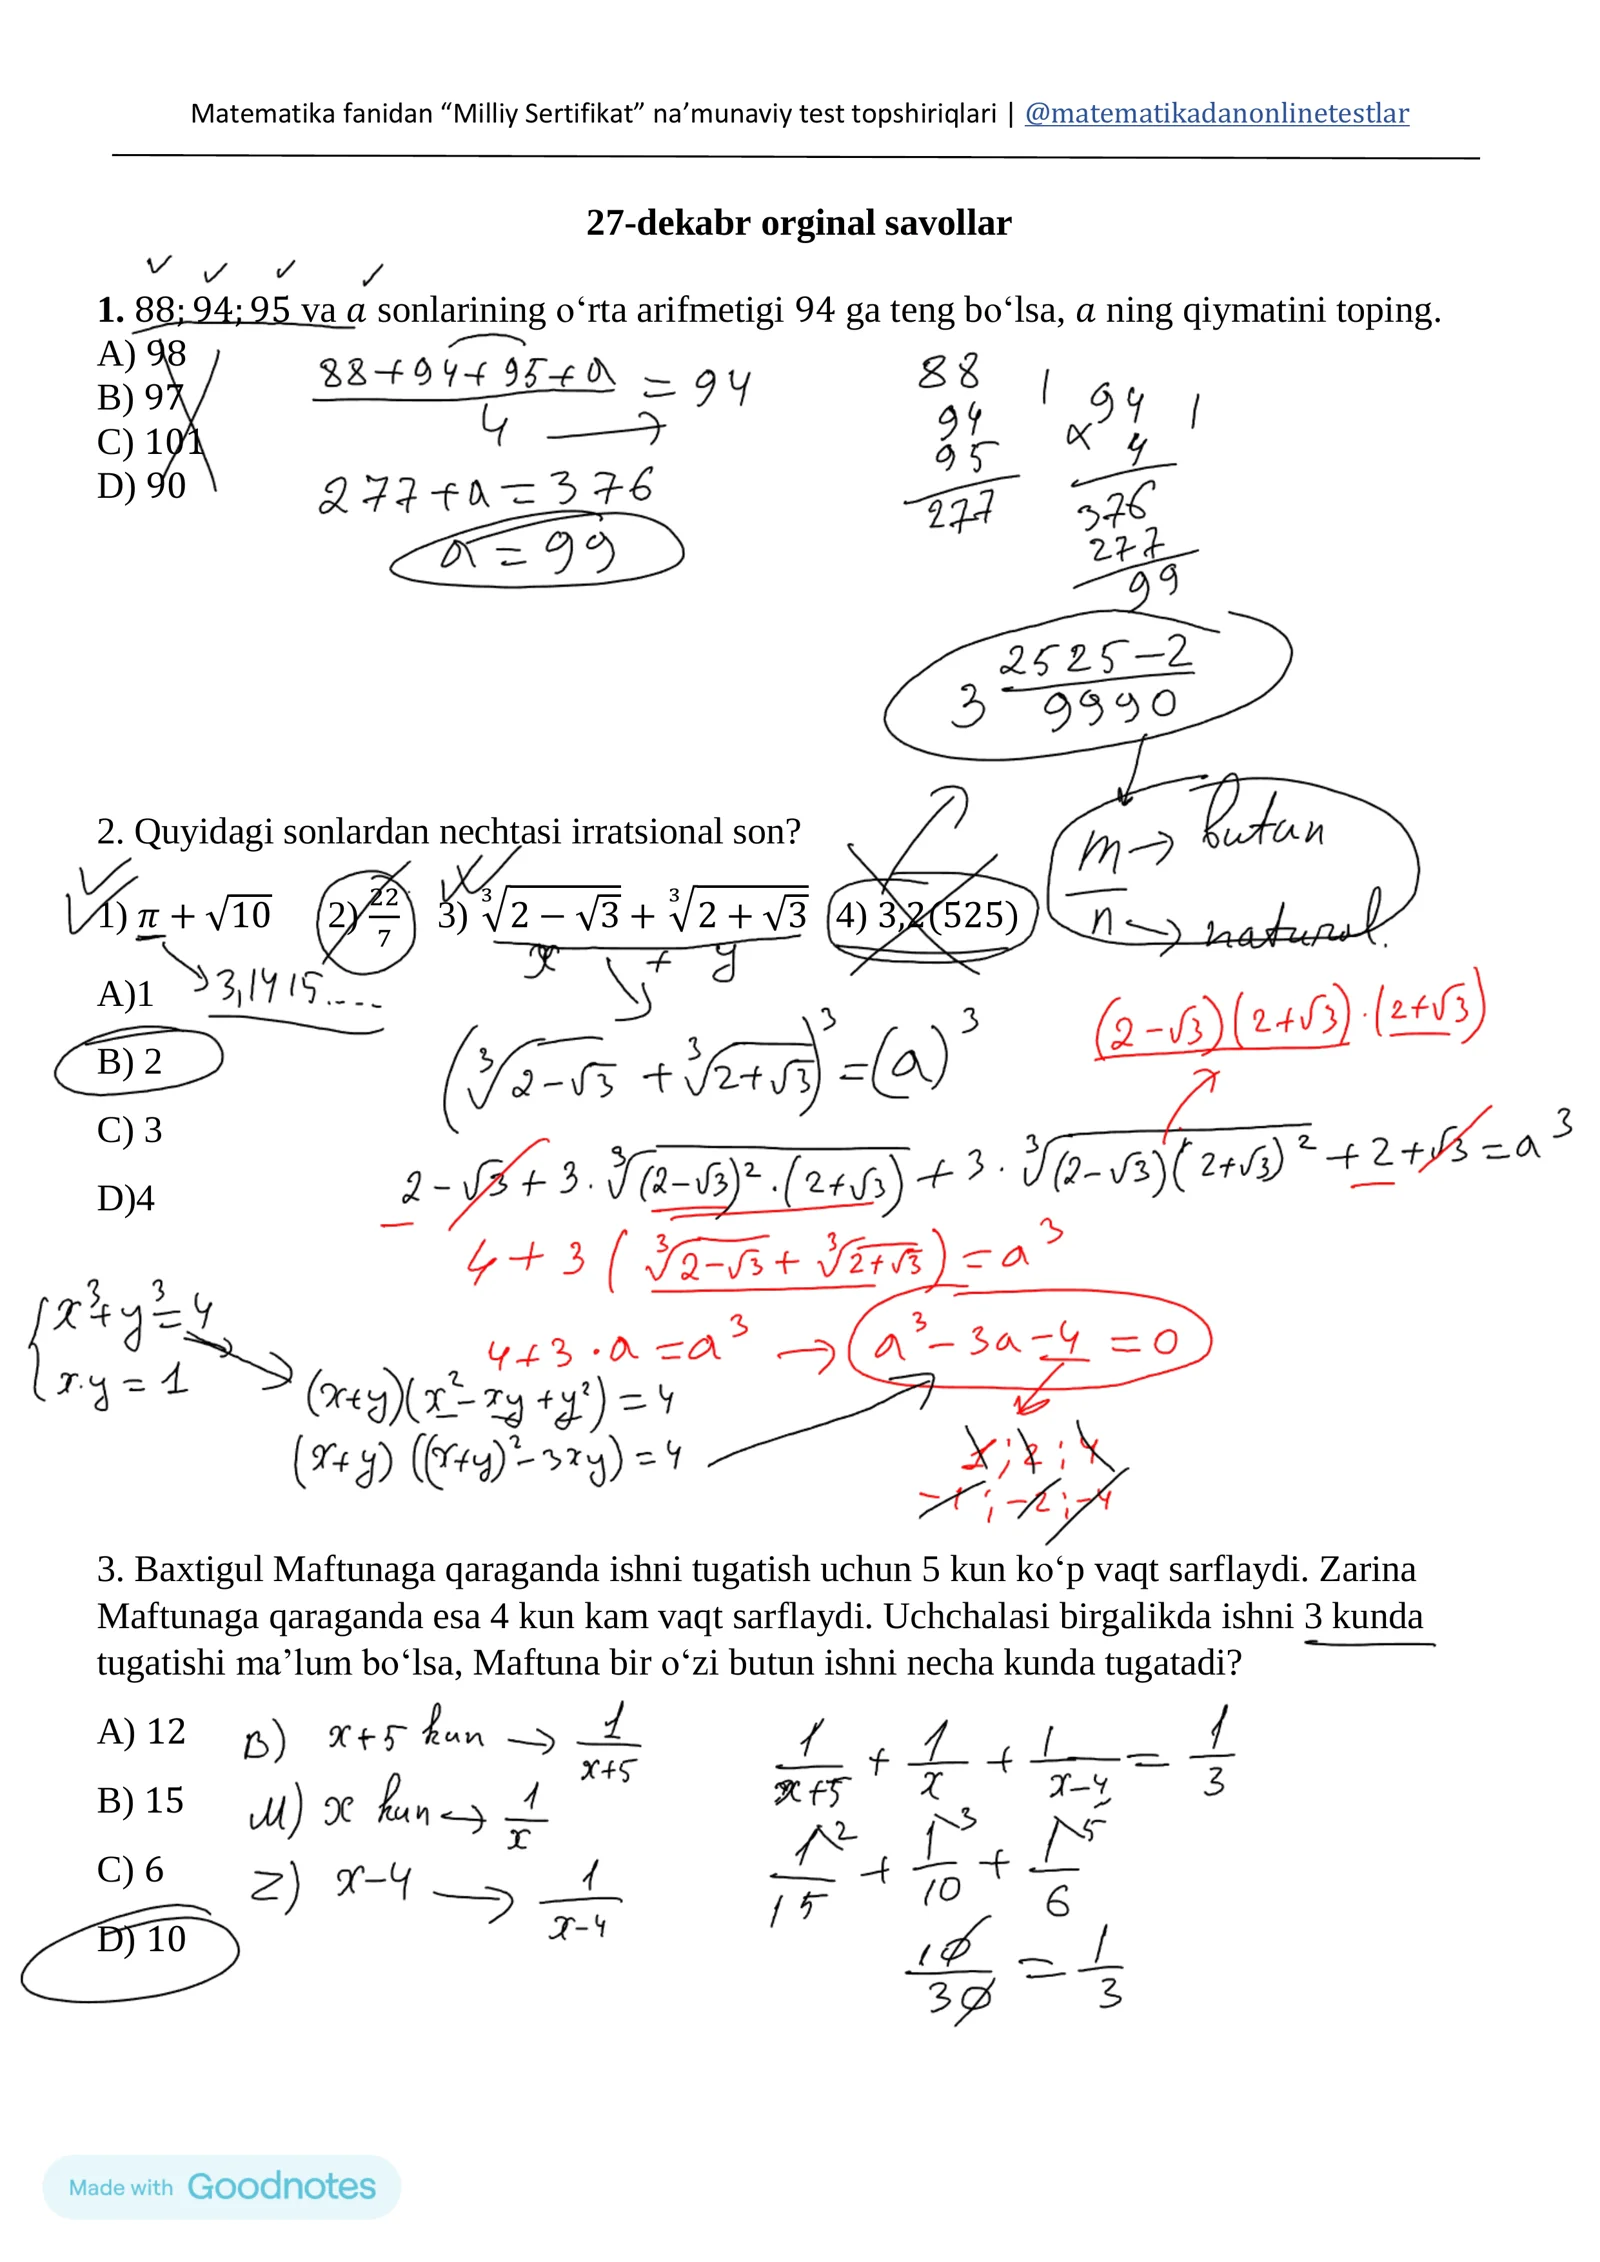 Matematika fanidan “Milliy Sertifikat” na’munaviy test topshiriqlari | @matematikadanonlinetestlar
27-dekabr orginal savollar
1. 88; 94; 95 va a sonlarining o‘rta arifmetigi 94 ga teng bo‘lsa, a ning qiymatini toping.
A) 98
B) 97
C) 101
D) 90
(88+94+95+a)/4 = 94
277+a=376
a=99
88
94
95
277
1 94 1
× 4
376
277
99
3 (2525-2)/9990
m → butun
n → natural.
2. Quyidagi sonlardan nechtasi irratsional son?
1) π + √10 2) 22/7 3) ∛(2 − √3) + ∛(2 + √3) 4) 3,2(525)
x + y
3,1415....
A)1
B) 2
C) 3
D)4
(∛(2-√3) + ∛(2+√3))³ = (a)³
(2-√3)(2+√3)·(2+√3)
2-√3+3·∛((2-√3)²·(2+√3)) + 3·∛((2-√3)(2+√3)²) +2+√3=a³
4+3(∛(2-√3)+∛(2+√3))=a³
4+3·a=a³ → a³-3a-4=0
1; 2; 4
-1; -2; -4
x³+y³=4
x·y=1
(x+y)(x²-xy+y²)=4
(x+y)((x+y)²-3xy)=4
3. Baxtigul Maftunaga qaraganda ishni tugatish uchun 5 kun ko‘p vaqt sarflaydi. Zarina
Maftunaga qaraganda esa 4 kun kam vaqt sarflaydi. Uchchalasi birgalikda ishni 3 kunda
tugatishi ma’lum bo‘lsa, Maftuna bir o‘zi butun ishni necha kunda tugatadi?
A) 12
B) 15
C) 6
D) 10
B) x+5 kun → 1/(x+5)
M) x kun → 1/x
Z) x-4 → 1/(x-4)
1/(x+5) + 1/x + 1/(x-4) = 1/3
1/15 ² + 1/10 ³ + 1/6 ⁵
10/30 = 1/3
Made with Goodnotes